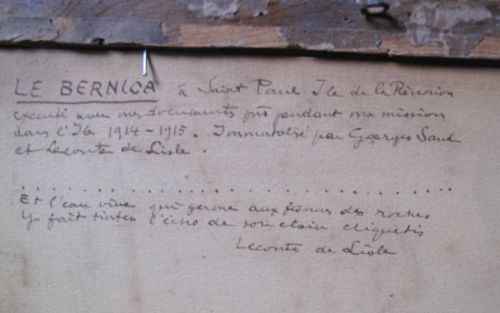 LE BERNICA à Saint Paul Ile de la Réunion
executé avec mes documents pris pendant ma mission
dans l'Ile 1914-1915. Immortalisé par Georges Sand
et Leconte de Lisle.
Et l'eau vive qui germe aux fissures des roches
Y fait tinter l'écho de son clair cliquetis
Leconte de Lisle